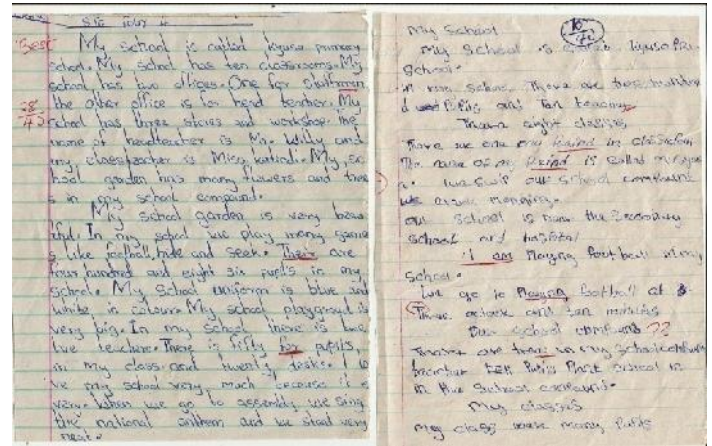 Best
My school is called kyusa primary
school. My school has ten classrooms. My
school has two offices. One for staffroom
the other office is for head teacher. My
school has three stores and workshop. The
name of headteacher is Mr. Willy and
my classteacher is Miss. My sc
hool garden has many flowers and tree
s in my school compound.
My school garden is very beau
tiful. In my school we play many game
s like football, hide and seek. Their are
four hundred and eight six pupil's in my
school. My school uniform is blue and
white in colour. My school playground is
very big. In my school there is twe
lve teachers. There is fifty for pupils,
in my class and twenty disks. I lo
ve my school very much because it is
very. When we go to assembly we sing
the national anthem and we stand very
neat.
28
My School
My School is
School.
in my school. There are
pupils and Ten teachers
There eight classes
There we one my friend in classroom
The name of my friend is called
we swip our school compound
we every morning.
our school is near the Secondary
school and hospital
I am Playing football in my
school.
We go to Playing football at 3
Three oclock and ten minutes
Our school compound ??
There are in my school compound
ten Pupils Plant in
in the School compound.
My classes
my class have many Pupils